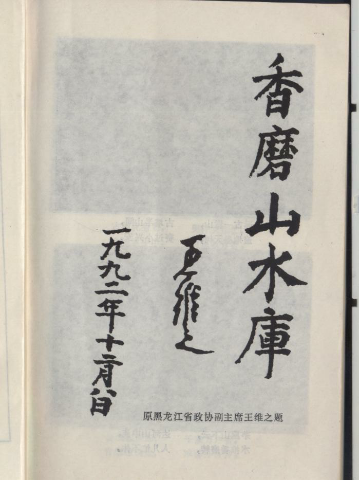 香磨山水庫
王维之
一九九二年十二月八日
原黑龙江省政协副主席王维之题